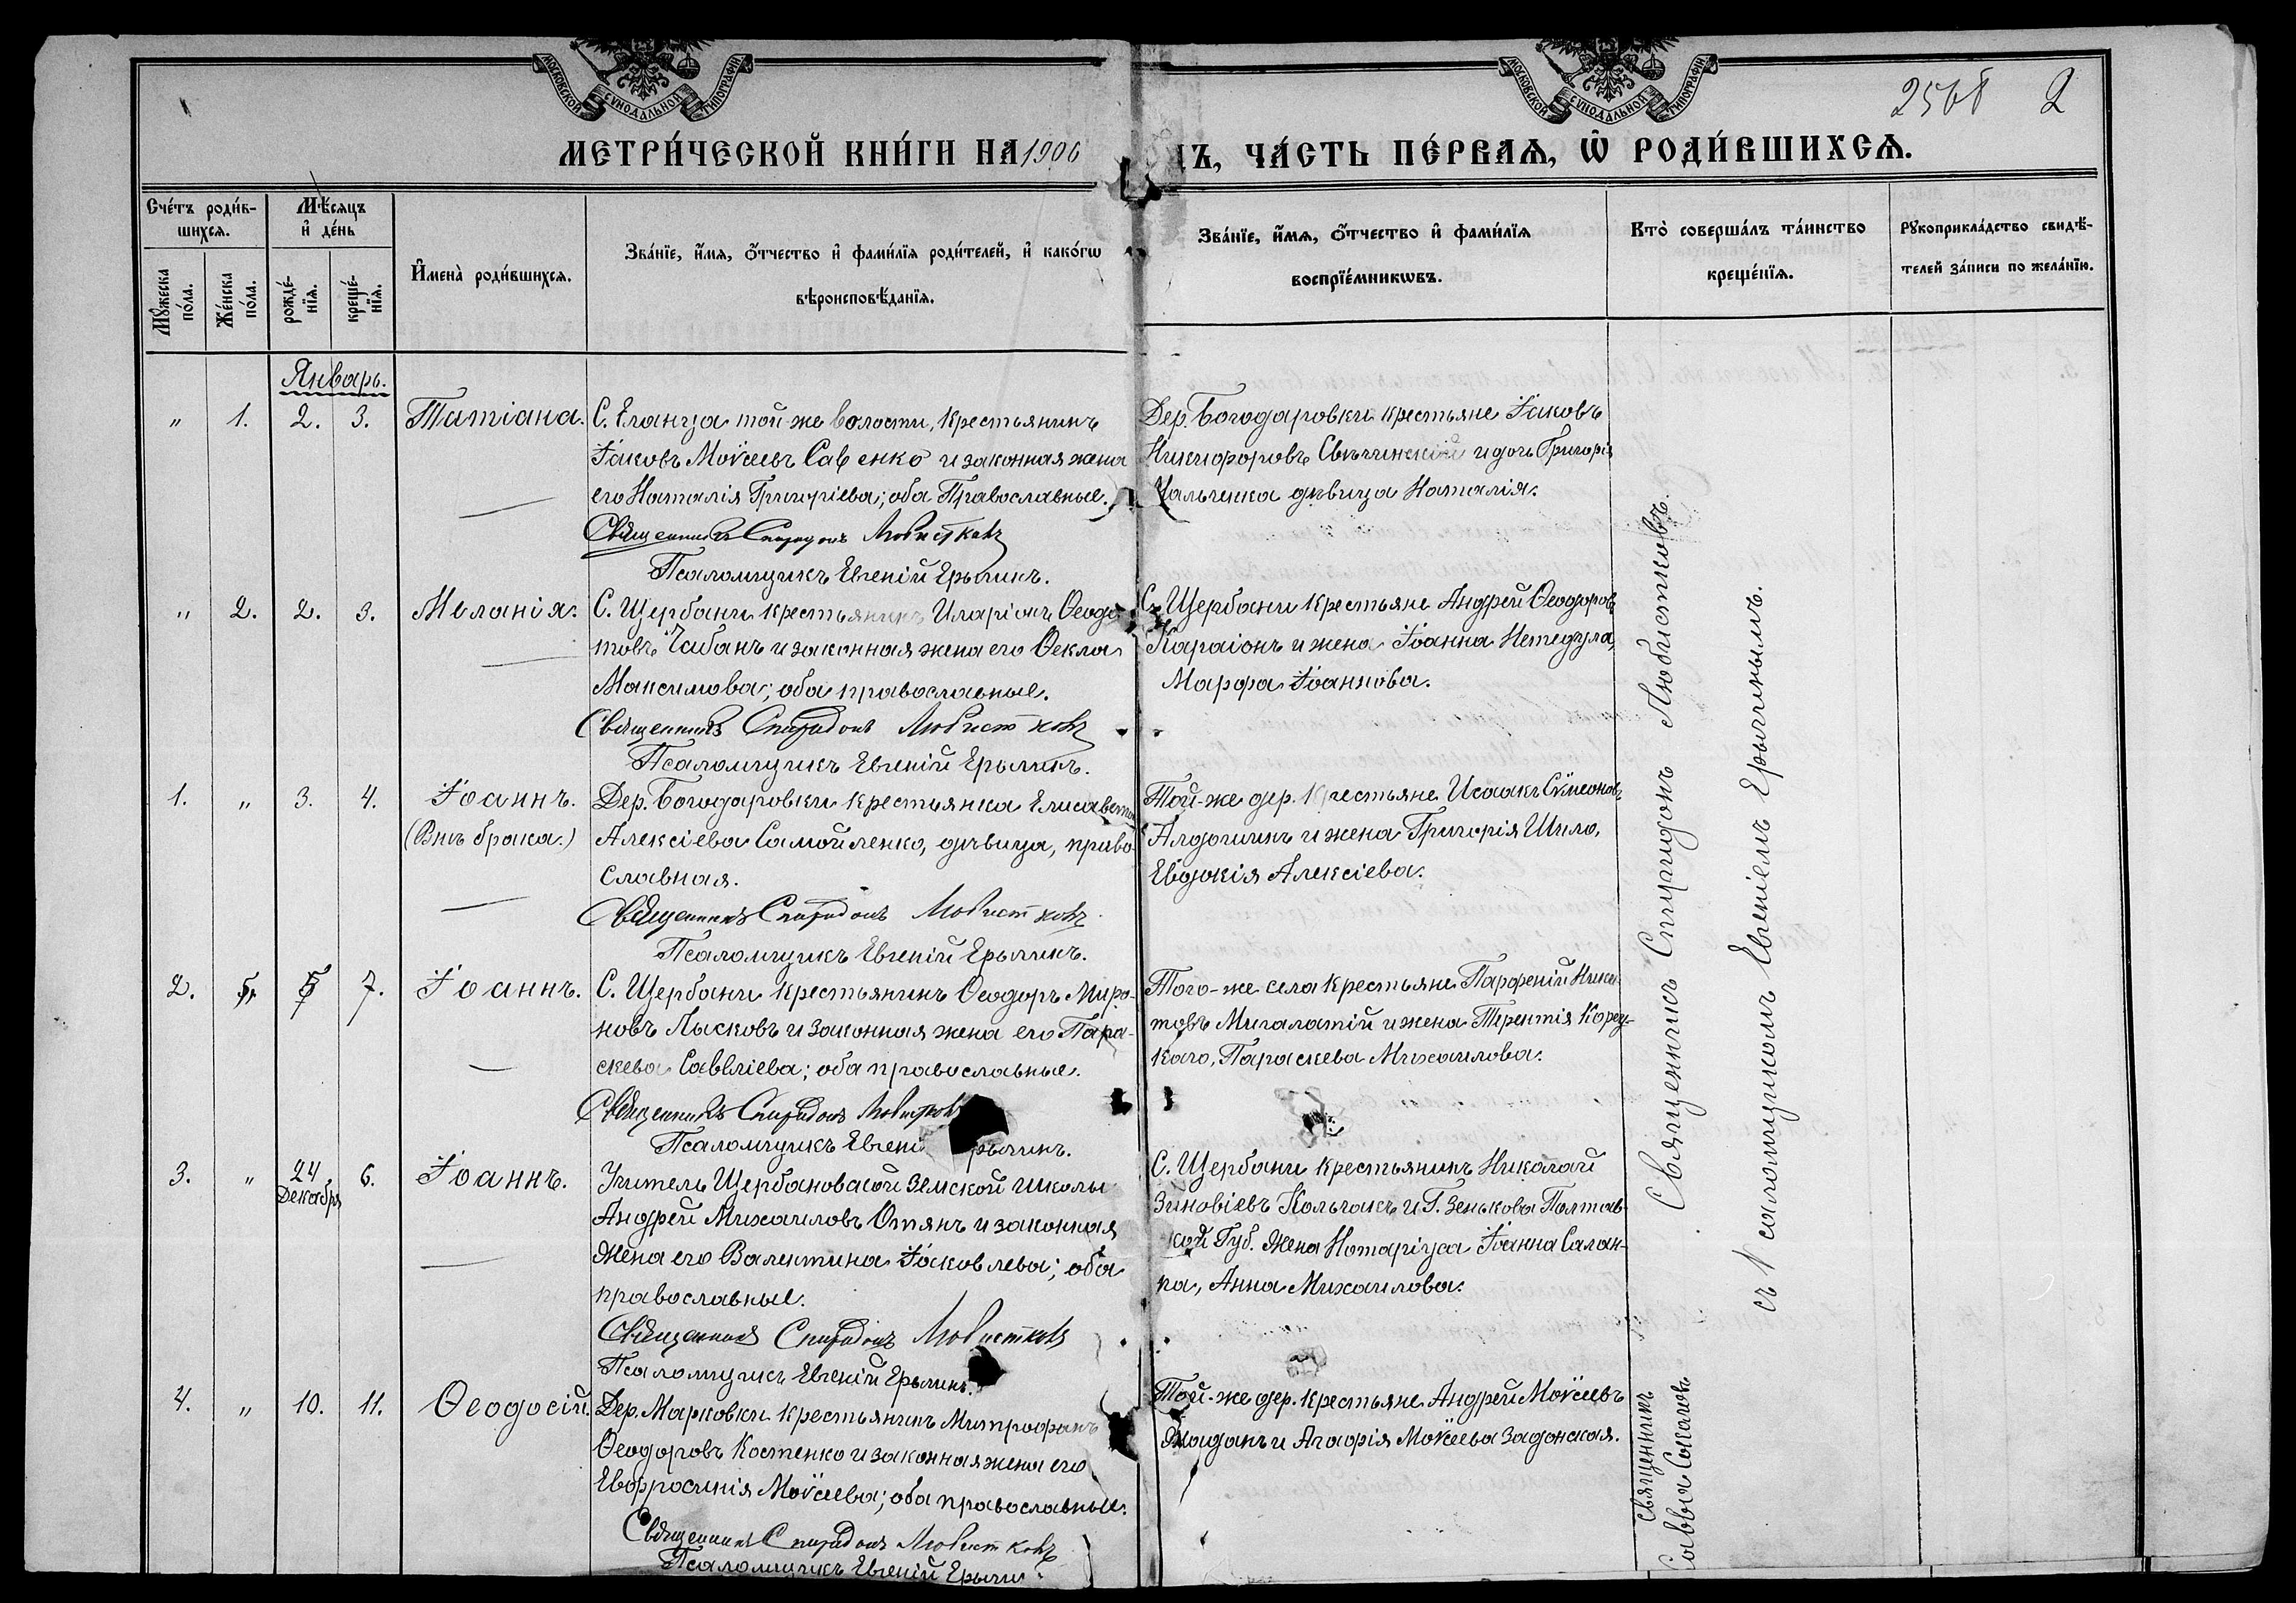 МОСКОВСКОЙ СѴНОДАЛЬНОЙ ТИПОГРАФІИ
МОСКОВСКОЙ СѴНОДАЛЬНОЙ ТИПОГРАФІИ
2
МЕТРИ́ЧЕСКОЙ КНИ́ГИ НА 1906
Ъ, ЧА́СТЬ ПЕ́РВАѦ, Ѡ РОДИ́ВШИХСѦ.
Сче́тъ роди́в-
шихсѧ.
Мꙋ́жеска по́ла.
Же́нска по́ла.
Мѣ́сѧцъ
и҆ де́нь
рожде́-
нїѧ.
креще́-
нїѧ.
И҆мена̀ роди́вшихсѧ.
Зва́нїе, и҆́мѧ, ѻ҆́тчество и҆ фами́лїѧ роди́телей, и҆ како́гѡ
вѣроисповѣ́данїѧ.
Зва́нїе, и҆́мѧ, ѻ҆́тчество и҆ фами́лїѧ
воспрїе́мникѡвъ.
Кто̀ соверша́лъ та́инство
креще́нїѧ.
Рꙋкоприкла́дство свидѣ́-
телей за́писи по жела́нїю.
Январь.
„ 1. 2. 3. Татіана.
С. Еланца той-же волости, крестьянинъ
Іаковъ Моѵсеевъ Савенко и законная жена
его Наталія Григоріева; оба Православные.
Священникъ Спиридонъ Любистковъ
Псаломщикъ Евгеній Ерыгинъ.
Дер. Богодаровки крестьяне Іаковъ
Никифоровъ и дочь Григорія
девица Наталія.
„ 2. 2. 3. Меланія.
С. Щербани крестьянинъ Иларіонъ Ѳеодо
товъ Чабанъ и законная жена его Ѳекла
Максимова; оба православные.
Священникъ Спиридонъ Любистковъ
Псаломщикъ Евгеній Ерыгинъ.
С. Щербани крестьяне Андрей Ѳеодоровъ
Караіонъ и жена Іоанна Нетедула,
Марфа Іоаннова.
1. „ 3. 4. Іоаннъ.
(Внѣ брака.)
Дер. Богодаровки крестьянка Елисавета
Алексіева Самойленко, дѣвица, право-
славная.
Священникъ Спиридонъ Любистковъ
Псаломщикъ Евгеній Ерыгинъ.
Той-же дер. крестьяне Исаакъ Сѵмеоновъ
Алдошинъ и жена Григорія Шило,
Евдокія Алексіева.
2. 7. Іоаннъ.
С. Щербани крестьянинъ Ѳеодоръ Миро-
новъ Лысковъ и законная жена его Пара-
скева Саввиіева; оба православные.
Священникъ Спиридонъ Любистковъ
Псаломщикъ Евгені рыгинъ.
Того-же села крестьяне Парфеній Ники-
товъ Мигалатій и жена Терентія Корец-
каго, Параскева Михаилова.
3. „ 24 Декабря 6. Іоаннъ.
Учитель Щербановской Земской школы
Андрей Михаиловъ Отянъ и законная
жена его Валентина Іаковлева; оба
православные.
Священникъ Спиридонъ Любистковъ
Псаломщикъ Евгеній Ерыгинъ.
С. Щербани крестьянинъ Николай
Зиновіевъ Колчакъ и Г. Зенькова Полтав-
кой Губ. жена Нотаріуса Іоанна Салан-
на, Анна Михаилова.
4. „ 10. 11. Ѳеодосій.
Дер. Марковки крестьянинъ Митрофанъ
Ѳеодоровъ Костенко и законная жена его
Евфросинія Моѵсеева; оба православные.
Священникъ Спиридонъ Любистковъ
Псаломщикъ Евгеній Ерыги
Той-же дер. крестьяне Андрей Моѵсеевъ
и Агафія Моѵсеева Задонская.
Священникъ Спиридонъ Любистковъ.
съ Псаломщикомъ Евгеніемъ Ерыгинымъ.
Священникъ